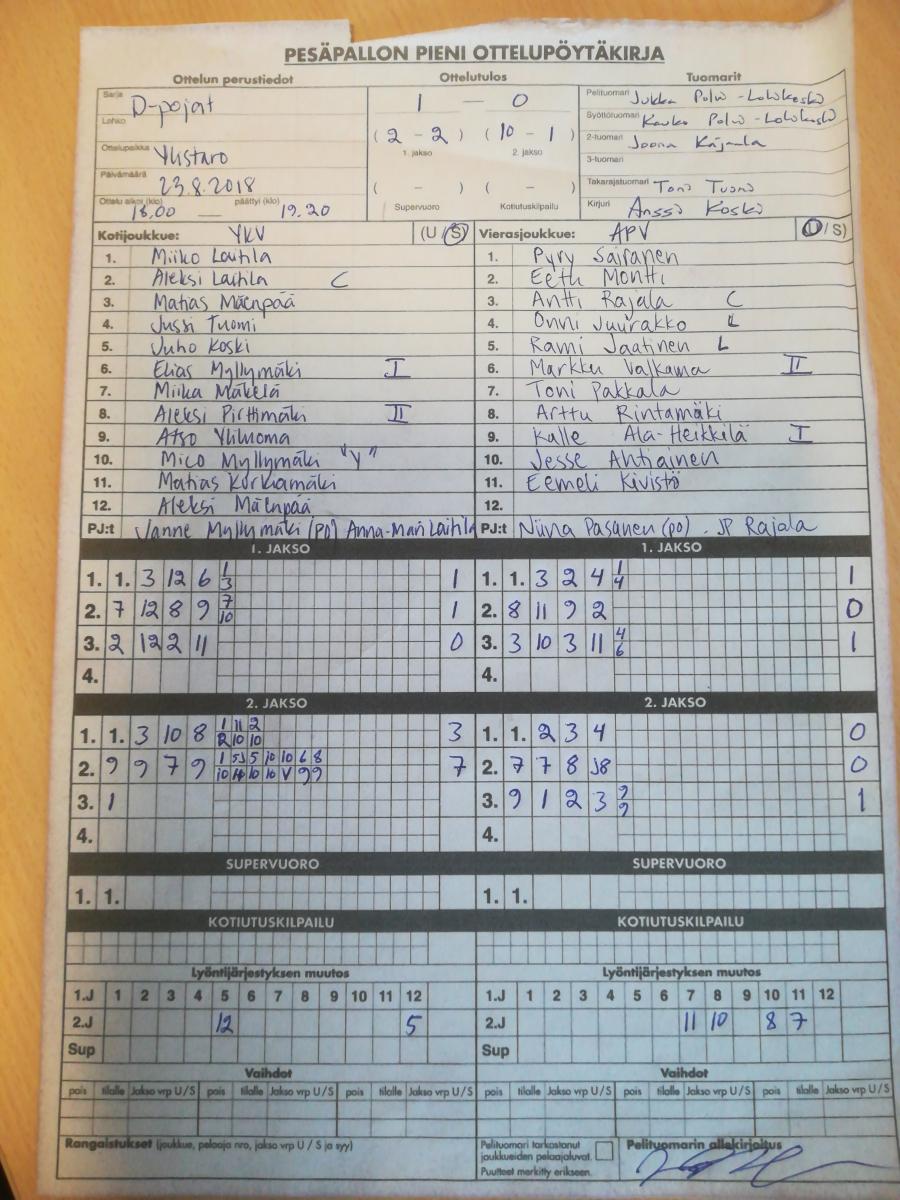 PESÄPALLON PIENI OTTELUPÖYTÄKIRJA
Ottelun perustiedot Ottelutulos Tuomarit
Sarja D-pojat 1 — 0 Pelituomari Jukka Polvi-Lohikoski
Lohko ( 2 - 2 ) ( 10 - 1 ) Syöttötuomari Kauko Polvi-Lohikoski
1. jakso 2. jakso 2-tuomari Joona Kajaala
Ottelupaikka Ylistaro 3-tuomari
Päivämäärä 23.8.2018 ( - ) ( - ) Takarajatuomari Toni Tuomi
Ottelu alkoi (klo) 18.00 — päättyi (klo) 19.20 Supervuoro Kotiutuskilpailu Kirjuri Anssi Koski
Kotijoukkue: YKV (U / S) Vierasjoukkue: APV (U / S)
1. Miiko Laitila 1. Pyry Sairanen
2. Aleksi Laitila C 2. Eetu Montti
3. Matias Mäenpää 3. Antti Rajala C
4. Jussi Tuomi 4. Onni Juurakko L
5. Juho Koski 5. Rami Jaatinen L
6. Elias Myllymäki I 6. Markku Valkama II
7. Miika Mäkelä 7. Toni Pakkala
8. Aleksi Pirttimäki II 8. Arttu Rintamäki
9. Atso Yliluoma 9. Kalle Ala-Heikkilä I
10. Mico Myllymäki "Y" 10. Jesse Ahtiainen
11. Matias Kurkiamäki 11. Eemeli Kivistö
12. Aleksi Mäenpää 12.
PJ:t Janne Myllymäki (PJ) Anna-Mari Laitila PJ:t Niina Pasanen (po) . JP Rajala
1. JAKSO 1. JAKSO
1. 1. 3 12 6 1/3 1 1. 1. 3 2 4 1/4 1
2. 7 12 8 9 7/10 1 2. 8 11 9 2 0
3. 2 12 2 11 0 3. 3 10 3 11 4/6 1
4. 4.
2. JAKSO 2. JAKSO
1. 1. 3 10 8 1/2 11/10 2/10 3 1. 1. 2 3 4 0
2. 9 9 7 9 7 2. 7 7 8 J8 0
3. 1 3. 9 1 2 3 9/9 1
4. 4.
SUPERVUORO SUPERVUORO
1. 1. 1. 1.
KOTIUTUSKILPAILU KOTIUTUSKILPAILU
Lyöntijärjestyksen muutos Lyöntijärjestyksen muutos
1.J 1 2 3 4 5 6 7 8 9 10 11 12 1.J 1 2 3 4 5 6 7 8 9 10 11 12
2.J 12 5 2.J 11 10 8 7
Sup Sup
Vaihdot Vaihdot
pois tilalle Jakso vrp U / S pois tilalle Jakso vrp U / S pois tilalle Jakso vrp U / S pois tilalle Jakso vrp U / S pois tilalle Jakso vrp U / S pois tilalle Jakso vrp U / S
Rangaistukset (joukkue, pelaaja nro, jakso vrp U / S ja syy) Pelituomari tarkastanut Pelituomarin allekirjoitus
joukkueiden pelaajaluvat.
Puutteet merkitty erikseen.